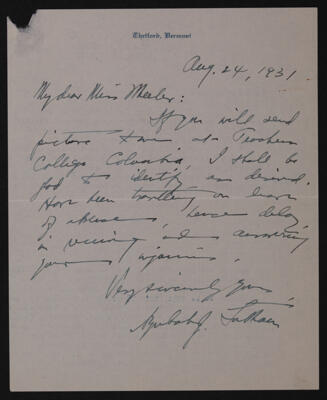 Thetford, Vermont
Aug. 24, 1931
My dear Miss Meeler:
If you will send
picture to me at Teachers
College Columbia, I shall be
glad to identify as desired.
Have been travelling on leave
of absence, hence delay
in receiving and answering
your inquiries.
Very sincerely yours,